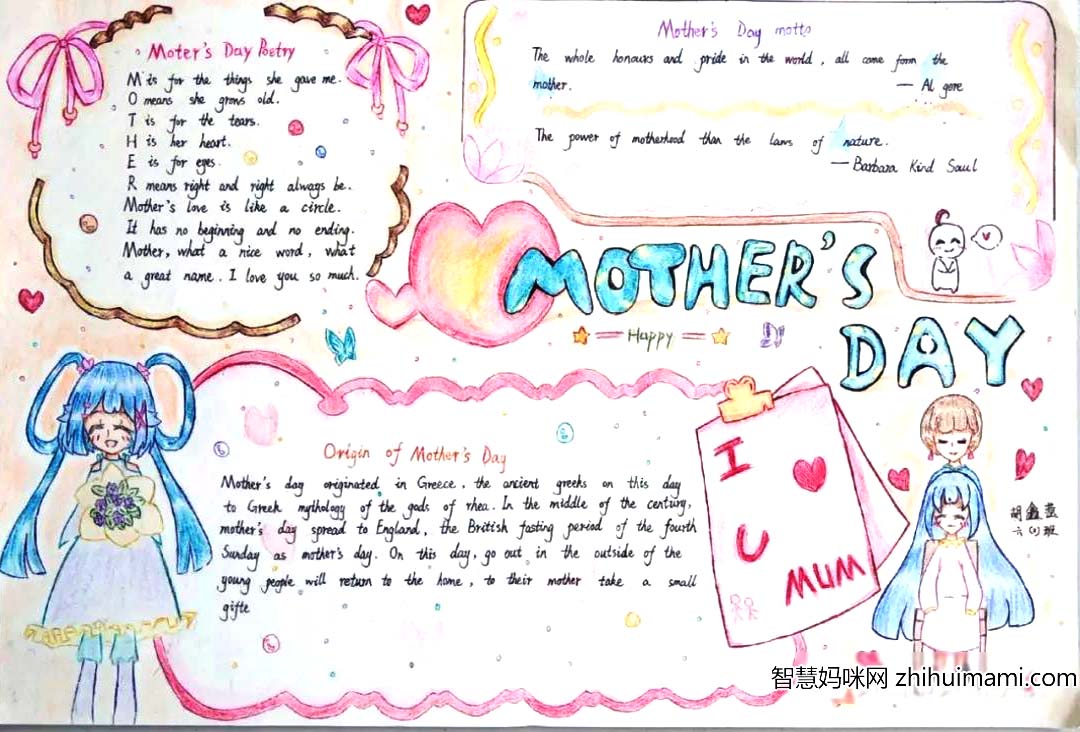 Moter's Day Poetry
M is for the things she gave me.
O means she grows old.
T is for the tears.
H is her heart.
E is for eyes.
R means right and right always be.
Mother's love is like a circle.
It has no beginning and no ending.
Mother, what a nice word, what
a great name. I love you so much.
Mother's Day motto
The whole honours and pride in the world, all come form the
mother.
— Al gore
The power of motherhood than the laws of nature.
—Barbara Kind Saul
MOTHER'S
Happy
DAY
Origin of Mother's Day
Mother's day originated in Greece, the ancient greeks on this day
to Greek mythology of the gods of rhea. In the middle of the century,
mother's day spread to England, the British fasting period of the fourth
Sunday as mother's day. On this day, go out in the outside of the
young people will return to the home, to their mother take a small
gifte
I
U
MUM
胡鑫
班
智慧妈咪网 zhihuimami.com